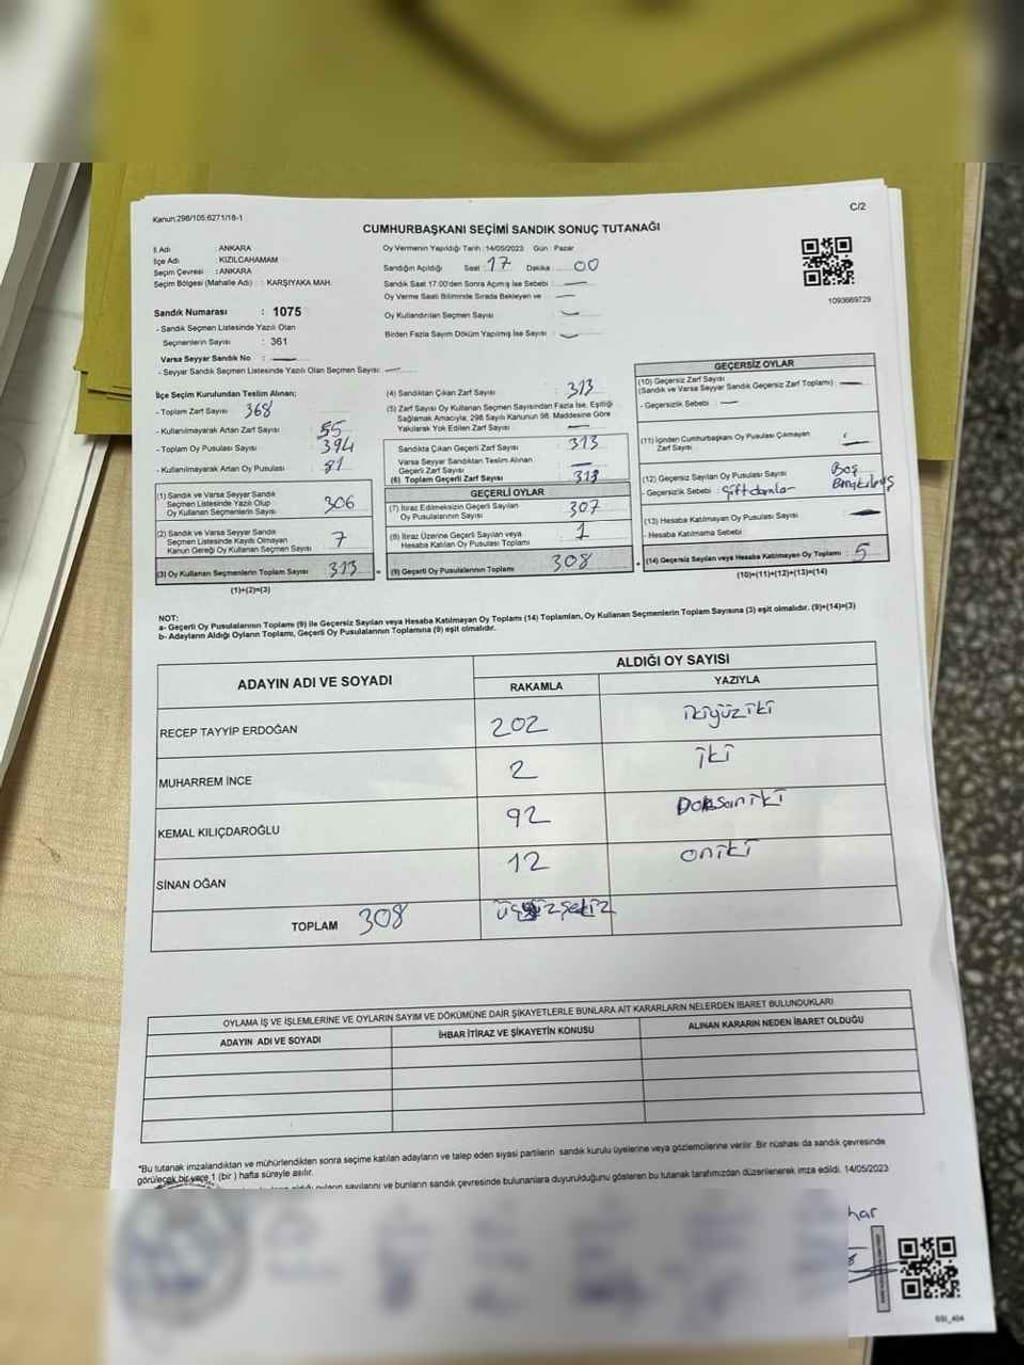 Kanun:298/105:6271/18-1
C/2
CUMHURBAŞKANI SEÇİMİ SANDIK SONUÇ TUTANAĞI
İl Adı : ANKARA
İlçe Adı : KIZILCAHAMAM
Seçim Çevresi : ANKARA
Seçim Bölgesi (Mahalle Adı) : KARŞIYAKA MAH.
Oy Vermenin Yapıldığı Tarih :14/05/2023 Gün : Pazar
Sandığın Açıldığı Saat : 17 Dakika : 00
Sandık Saat 17:00'den Sonra Açılmış İse Sebebi :
Oy Verme Saati Bitiminde Sırada Bekleyen ve
Oy Kullandırılan Seçmen Sayısı :
Birden Fazla Sayım Döküm Yapılmış İse Sayısı :
1093669729
Sandık Numarası : 1075
- Sandık Seçmen Listesinde Yazılı Olan
Seçmenlerin Sayısı : 361
Varsa Seyyar Sandık No :
- Seyyar Sandık Seçmen Listesinde Yazılı Olan Seçmen Sayısı :
İlçe Seçim Kurulundan Teslim Alınan;
- Toplam Zarf Sayısı : 368
- Kullanılmayarak Artan Zarf Sayısı : 55
- Toplam Oy Pusulası Sayısı : 394
- Kullanılmayarak Artan Oy Pusulası : 81
(1) Sandık ve Varsa Seyyar Sandık
Seçmen Listesinde Yazılı Olup
Oy Kullanan Seçmenlerin Sayısı : 306
(2) Sandık ve Varsa Seyyar Sandık
Seçmen Listesinde Kayıtlı Olmayan
Kanun Gereği Oy Kullanan Seçmen Sayısı : 7
(3) Oy Kullanan Seçmenlerin Toplam Sayısı : 313
(1)+(2)=(3)
(4) Sandıktan Çıkan Zarf Sayısı : 313
(5) Zarf Sayısı Oy Kullanan Seçmen Sayısından Fazla İse, Eşitliği
Sağlamak Amacıyla, 298 Sayılı Kanunun 98. Maddesine Göre
Yakılarak Yok Edilen Zarf Sayısı :
Sandıkta Çıkan Geçerli Zarf Sayısı : 313
Varsa Seyyar Sandıktan Teslim Alınan
Geçerli Zarf Sayısı :
(6) Toplam Geçerli Zarf Sayısı : 313
GEÇERLİ OYLAR
(7) İtiraz Edilmeksizin Geçerli Sayılan
Oy Pusulalarının Sayısı : 307
(8) İtiraz Üzerine Geçerli Sayılan veya
Hesaba Katılan Oy Pusulası Toplamı : 1
= (9) Geçerli Oy Pusulalarının Toplamı : 308
GEÇERSİZ OYLAR
(10) Geçersiz Zarf Sayısı
(Sandık ve Varsa Seyyar Sandık Geçersiz Zarf Toplamı) :
- Geçersizlik Sebebi :
(11) İçinden Cumhurbaşkanı Oy Pusulası Çıkmayan
Zarf Sayısı :
(12) Geçersiz Sayılan Oy Pusulası Sayısı : Boş
- Geçersizlik Sebebi :
(13) Hesaba Katılmayan Oy Pusulası Sayısı :
- Hesaba Katılmama Sebebi :
+ (14) Geçersiz Sayılan veya Hesaba Katılmayan Oy Toplamı : 5
(10)+(11)+(12)+(13)=(14)
NOT:
a- Geçerli Oy Pusulalarının Toplamı (9) ile Geçersiz Sayılan veya Hesaba Katılmayan Oy Toplamı (14) Toplamları, Oy Kullanan Seçmenlerin Toplam Sayısına (3) eşit olmalıdır. (9)+(14)=(3)
b- Adayların Aldığı Oyların Toplamı, Geçerli Oy Pusulalarının Toplamına (9) eşit olmalıdır.
ADAYIN ADI VE SOYADI
ALDIĞI OY SAYISI
RAKAMLA YAZIYLA
RECEP TAYYİP ERDOĞAN 202 ikiyüziki
MUHARREM İNCE 2 iki
KEMAL KILIÇDAROĞLU 92 Doksaniki
SİNAN OĞAN 12 oniki
TOPLAM 308 üçyüzsekiz
OYLAMA İŞ VE İŞLEMLERİNE VE OYLARIN SAYIM VE DÖKÜMÜNE DAİR ŞİKAYETLERLE BUNLARA AİT KARARLARIN NELERDEN İBARET BULUNDUKLARI
ADAYIN ADI VE SOYADI İHBAR İTİRAZ VE ŞİKAYETİN KONUSU ALINAN KARARIN NEDEN İBARET OLDUĞU
*Bu tutanak imzalandıktan ve mühürlendikten sonra seçime katılan adayların ve talep eden siyasi partilerin sandık kurulu üyelerine veya gözlemcilerine verilir. Bir nüshası da sandık çevresinde
görülecek bir yere 1 (bir) hafta süreyle asılır.
oyların sayılarını ve bunların sandık çevresinde bulunanlara duyurulduğunu gösteren bu tutanak tarafımızdan düzenlenerek imza edildi. 14/05/2023